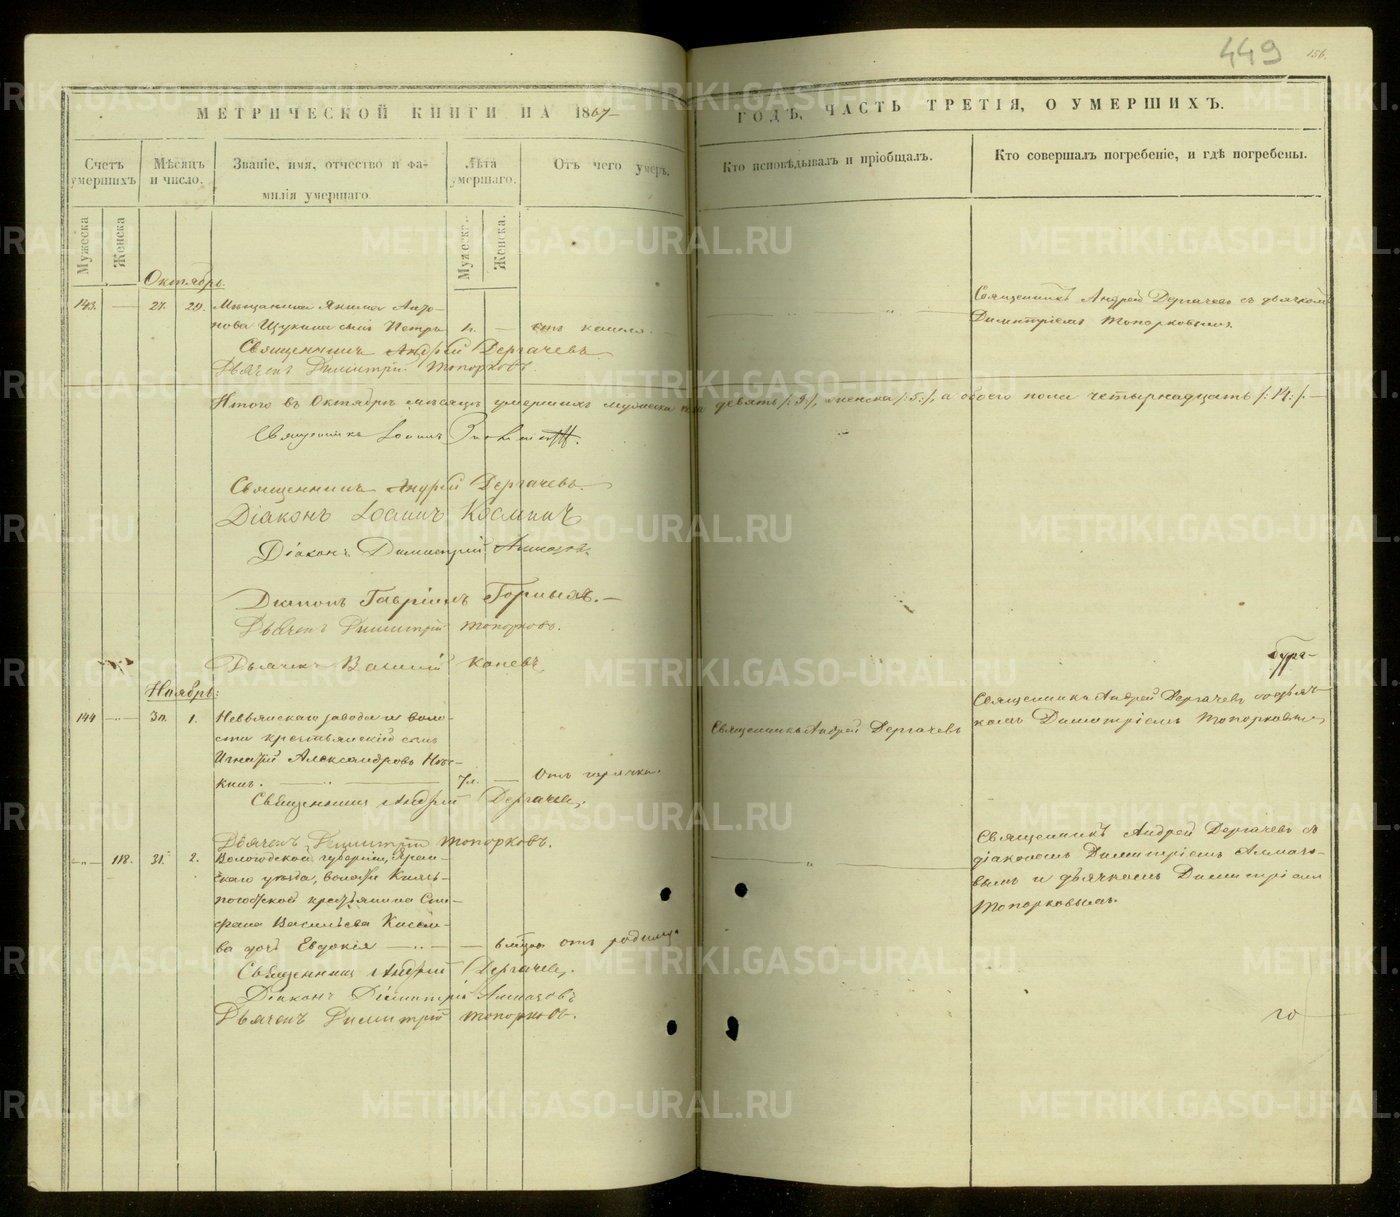 449
156.
МЕТРИЧЕСКОЙ КНИГИ НА 1867
ГОДЪ, ЧАСТЬ ТРЕТІЯ, О УМЕРШИХЪ.
Счетъ умершихъ
Мѣсяцъ и число.
Званіе, имя, отчество и фа-
милія умершаго
Лѣта умершаго.
Отъ чего умеръ.
Кто исповѣдывалъ и пріобщалъ.
Кто совершалъ погребеніе, и гдѣ погребены.
Мужеска
Женска
Мужеска.
Женска.
Октябрь.
143. — 27. 29.
Мѣщанина Якима Анто-
нова Щукина сынъ Петръ — отъ кашля.
Священникъ Андрей Дергачевъ съ дьячкомъ
Димитріемъ Топорковымъ.
Священникъ Андрей Дергачевъ
Дьячекъ Димитрій Топорковъ.
Итого въ Октябрѣ мѣсяцѣ умершихъ мужеска пола девять /:9:/, женска /:5:/, а обоего пола четырнадцать /:14:/.—
Священникъ Іоаннъ
Священникъ Андрей Дергачевъ.
Діаконъ Іоаннъ Космин
Діаконъ Димитрій Алмазовъ.
Діаконъ Гавріилъ Горныхъ.—
Дьячекъ Димитрій Топорковъ.
Дьячекъ Василій Коневъ
бург-
Ноябрь:
144 — 30. 1.
Невьянскаго завода и воло-
сти крестьянскій сынъ
Игнатій Александровъ
7л. — Отъ горячки.
Священникъ Андрей Дергачевъ
Священникъ Андрей Дергачевъ съ дьяч-
комъ Димитріемъ Топорковымъ
Священникъ Андрей Дергачевъ.
Дьячекъ Димитрій Топорковъ.
— 118. 31. 2.
Вологодской губерніи, Ярен-
скаго уѣзда, волости Княж-
погостской крестьянина Сте-
фана Васильева
ва дочь Евдокія — 6 мѣся. отъ родимца
Священникъ Андрей Дергачевъ съ
діакономъ Димитріемъ Алмазо-
вымъ и дьячкомъ Димитріемъ
Топорковымъ.
Священникъ Андрей Дергачевъ.
Діаконъ Димитрій Алмазовъ
Дьячекъ Димитрій Топорковъ.
го
METRIKI.GASO-URAL.RU